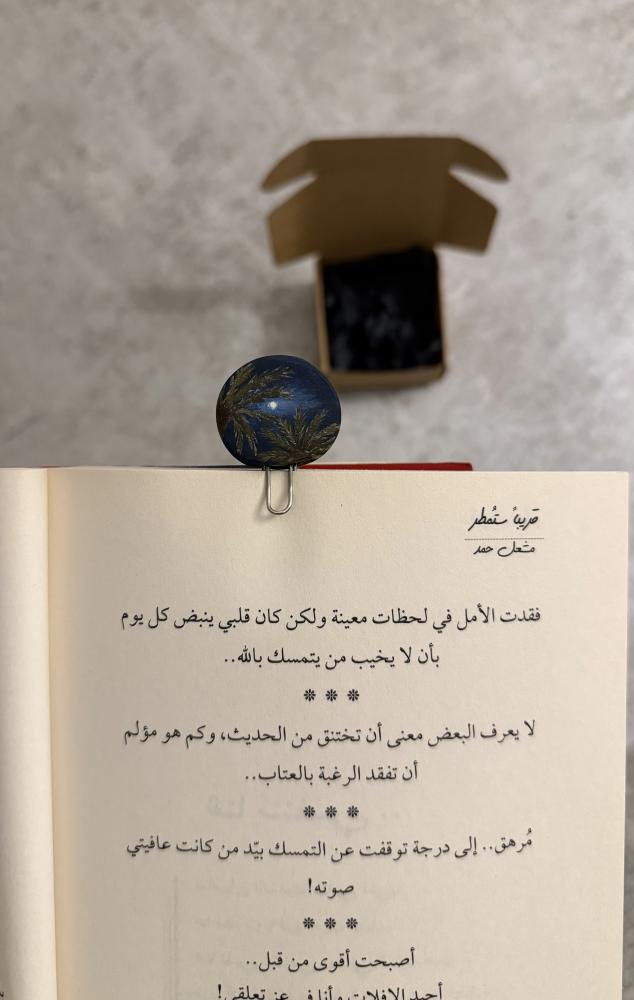 قريباً ستُمطر
مشعل حمد
فقدت الأمل في لحظات معينة ولكن كان قلبي ينبض كل يوم
بأن لا يخيب من يتمسك بالله..
***
لا يعرف البعض معنى أن تختنق من الحديث، وكم هو مؤلم
أن تفقد الرغبة بالعتاب..
***
مُرهق.. إلى درجة توقفت عن التمسك بيّد من كانت عافيتي
صوته!
***
أصبحت أقوى من قبل..
أجيد الإفلات وأنا في عز تعلقي!